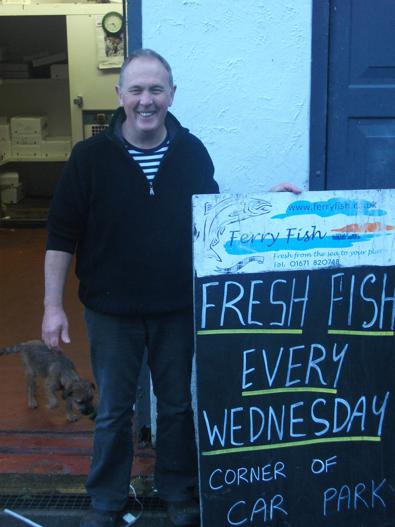 www.ferryfish.co.uk
Ferry Fish
Fresh from the sea to your plate
Tel. 01671 820748
FRESH FISH
EVERY
WEDNESDAY
CORNER OF
CAR PARK